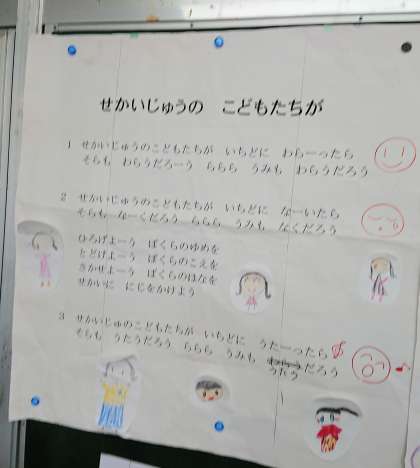 せかいじゅうの こどもたちが
1 せかいじゅうのこどもたちが いちどに わらーったら
そらも わらうだろーう ららら うみも わらうだろう
2 せかいじゅうのこどもたちが いちどに なーいたら
そらも なーくだろう ららら うみも なくだろう
ひろげよーう ぼくらのゆめを
とどけよーう ぼくらのこえを
さかせよーう ぼくらのはなを
せかいに にじをかけよう
3 せかいじゅのこどもたちが いちどに うたーったら
そらも うたうだろう ららら うみも わらう だろう
うたう